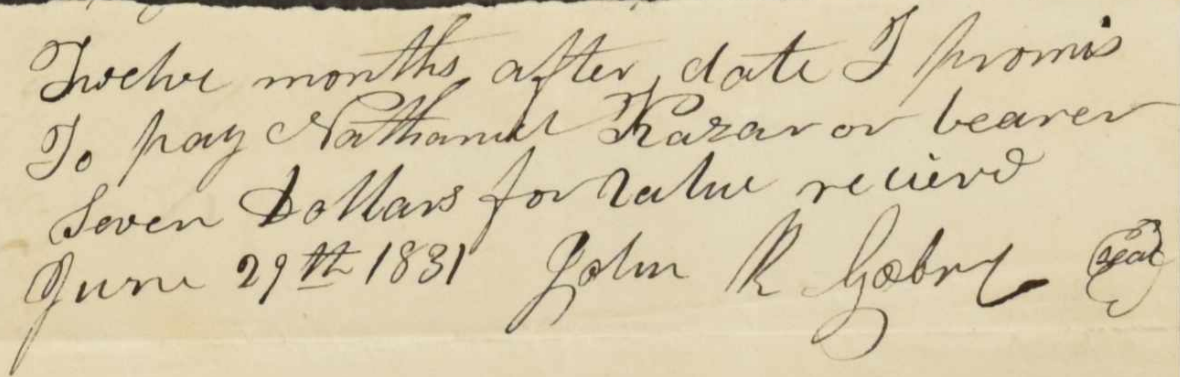 Twelve months after date I promis
To pay Nathaniel Kazar or bearer
Seven Dollars for value recievd
June 29th 1831 John R Seal